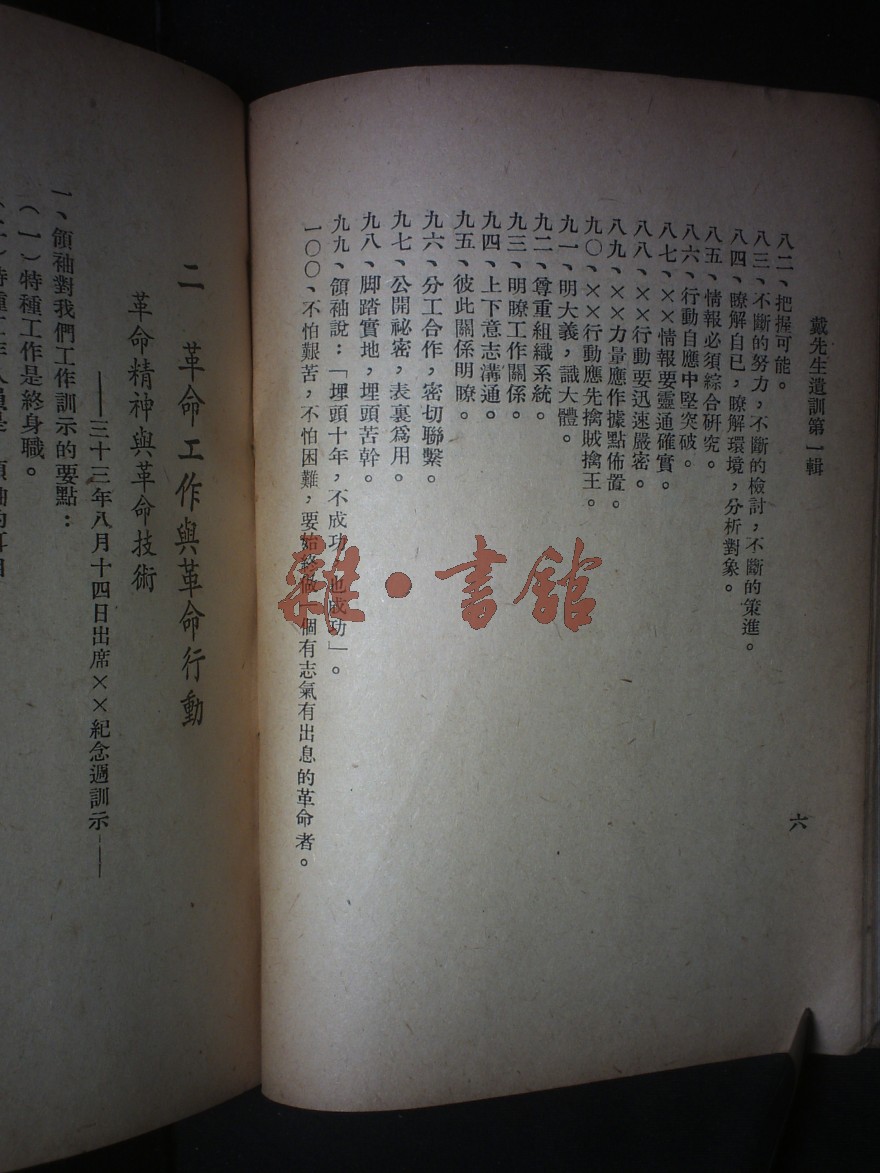 戴先生遺訓第一輯
六
八二、把握可能。
八三、不斷的努力，不斷的檢討，不斷的策進。
八四、瞭解自己，瞭解環境，分析對象。
八五、情報必須綜合研究。
八六、行動自應中堅突破。
八七、××情報要靈通確實。
八八、××行動要迅速嚴密。
八九、××力量應作據點佈置。
九〇、××行動應先擒賊擒王。
九一、明大義，識大體。
九二、尊重組織系統。
九三、明瞭工作關係。
九四、上下意志溝通。
九五、彼此關係明瞭。
九六、分工合作，密切聯繫。
九七、公開祕密，表裏爲用。
九八、脚踏實地，埋頭苦幹。
九九、領袖說：「埋頭十年，不成功，也成功」。
一〇〇、不怕艱苦，不怕困難，要始終做一個有志氣有出息的革命者。
雜·書館
二 革命工作與革命行動
革命精神與革命技術
——三十三年八月十四日出席××紀念週訓示——
一、領袖對我們工作訓示的要點：
（一）特種工作是終身職。